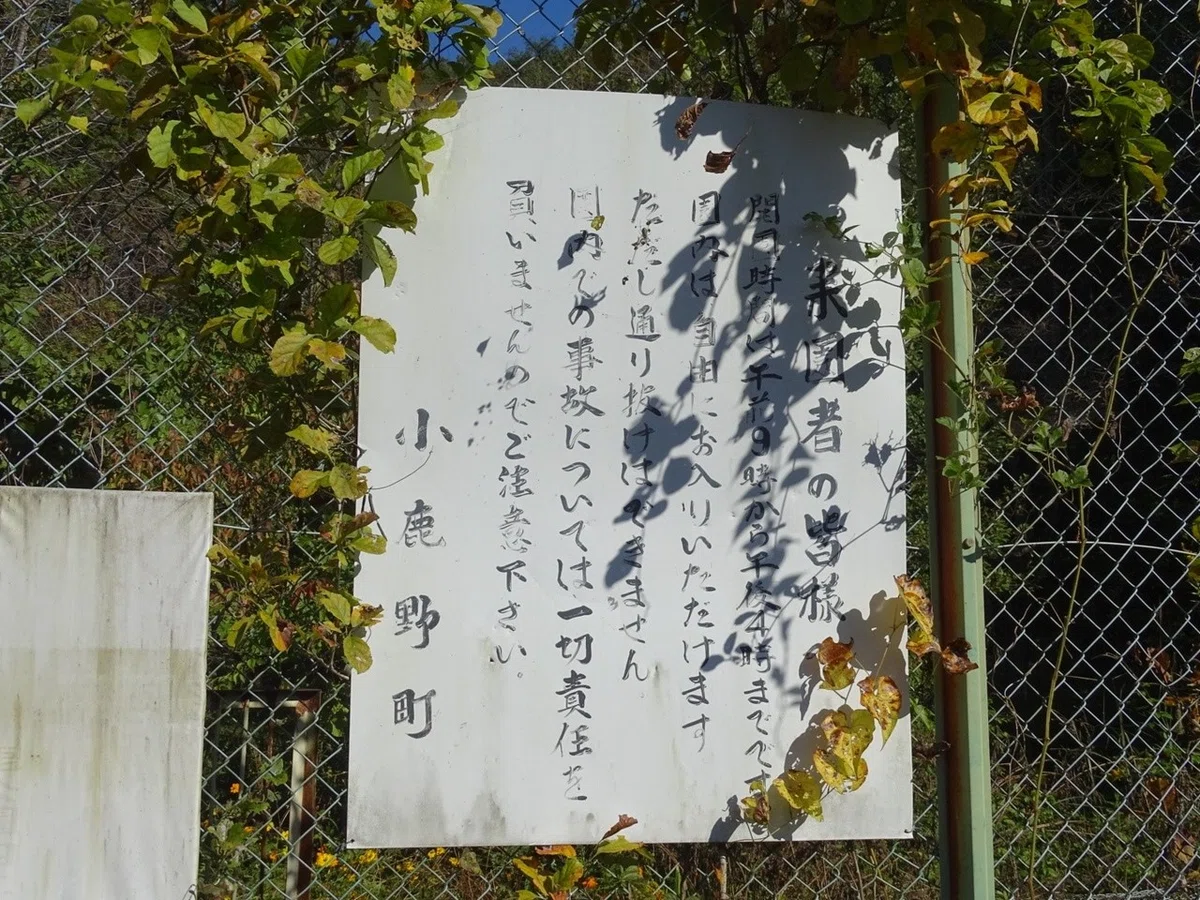 来園者の皆様
開門時間は午前9時から午後4時までです
園内は自由にお入りいただけます
ただし通り抜けはできません
園内での事故については一切責任を
負いませんのでご注意下さい。
小鹿野町